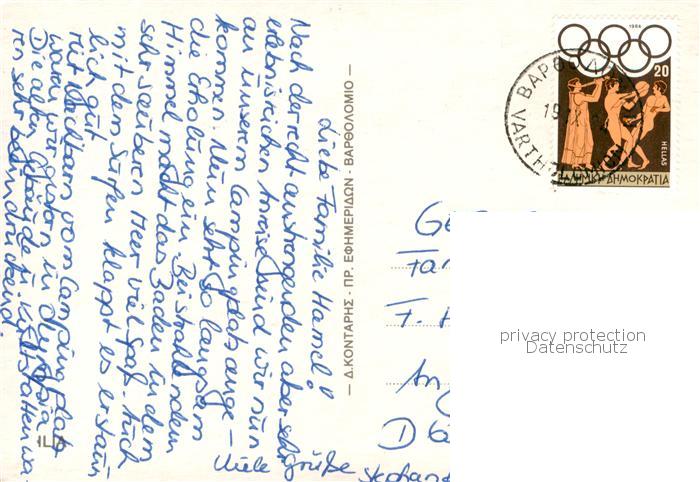 Liebe Familie Hamel!
Nach der recht anstrengenden aber sehr
erlebnisreichen Anreise sind wir nun
an unserem Campingplatz ange-
kommen. Nun geht so langsam
die Erholung ein. Bei strahlendem
Himmel macht das Baden in dem
sehr sauberen Meer viel Spaß. Auch
mit dem Surfen klappt es erstaun
lich gut.
Mit Nachbarn vom Campingplatz
waren wir gestern in Olympia
Die alten Gebäude u. Kultstätten wa-
ren sehr beeindruckend.
Viele Grüße
Stephan
— Δ.ΚΟΝΤΑΡΗΣ - ΠΡ. ΕΦΗΜΕΡΙΔΩΝ - ΒΑΡΘΟΛΟΜΙΟ —
1984
20
HELLAS
ΕΛΛΗΝΙΚΗ ΔΗΜΟΚΡΑΤΙΑ
ΒΑΡΘΟΛ
VARTH
19
Fa
F. H
D
privacy protection
Datenschutz